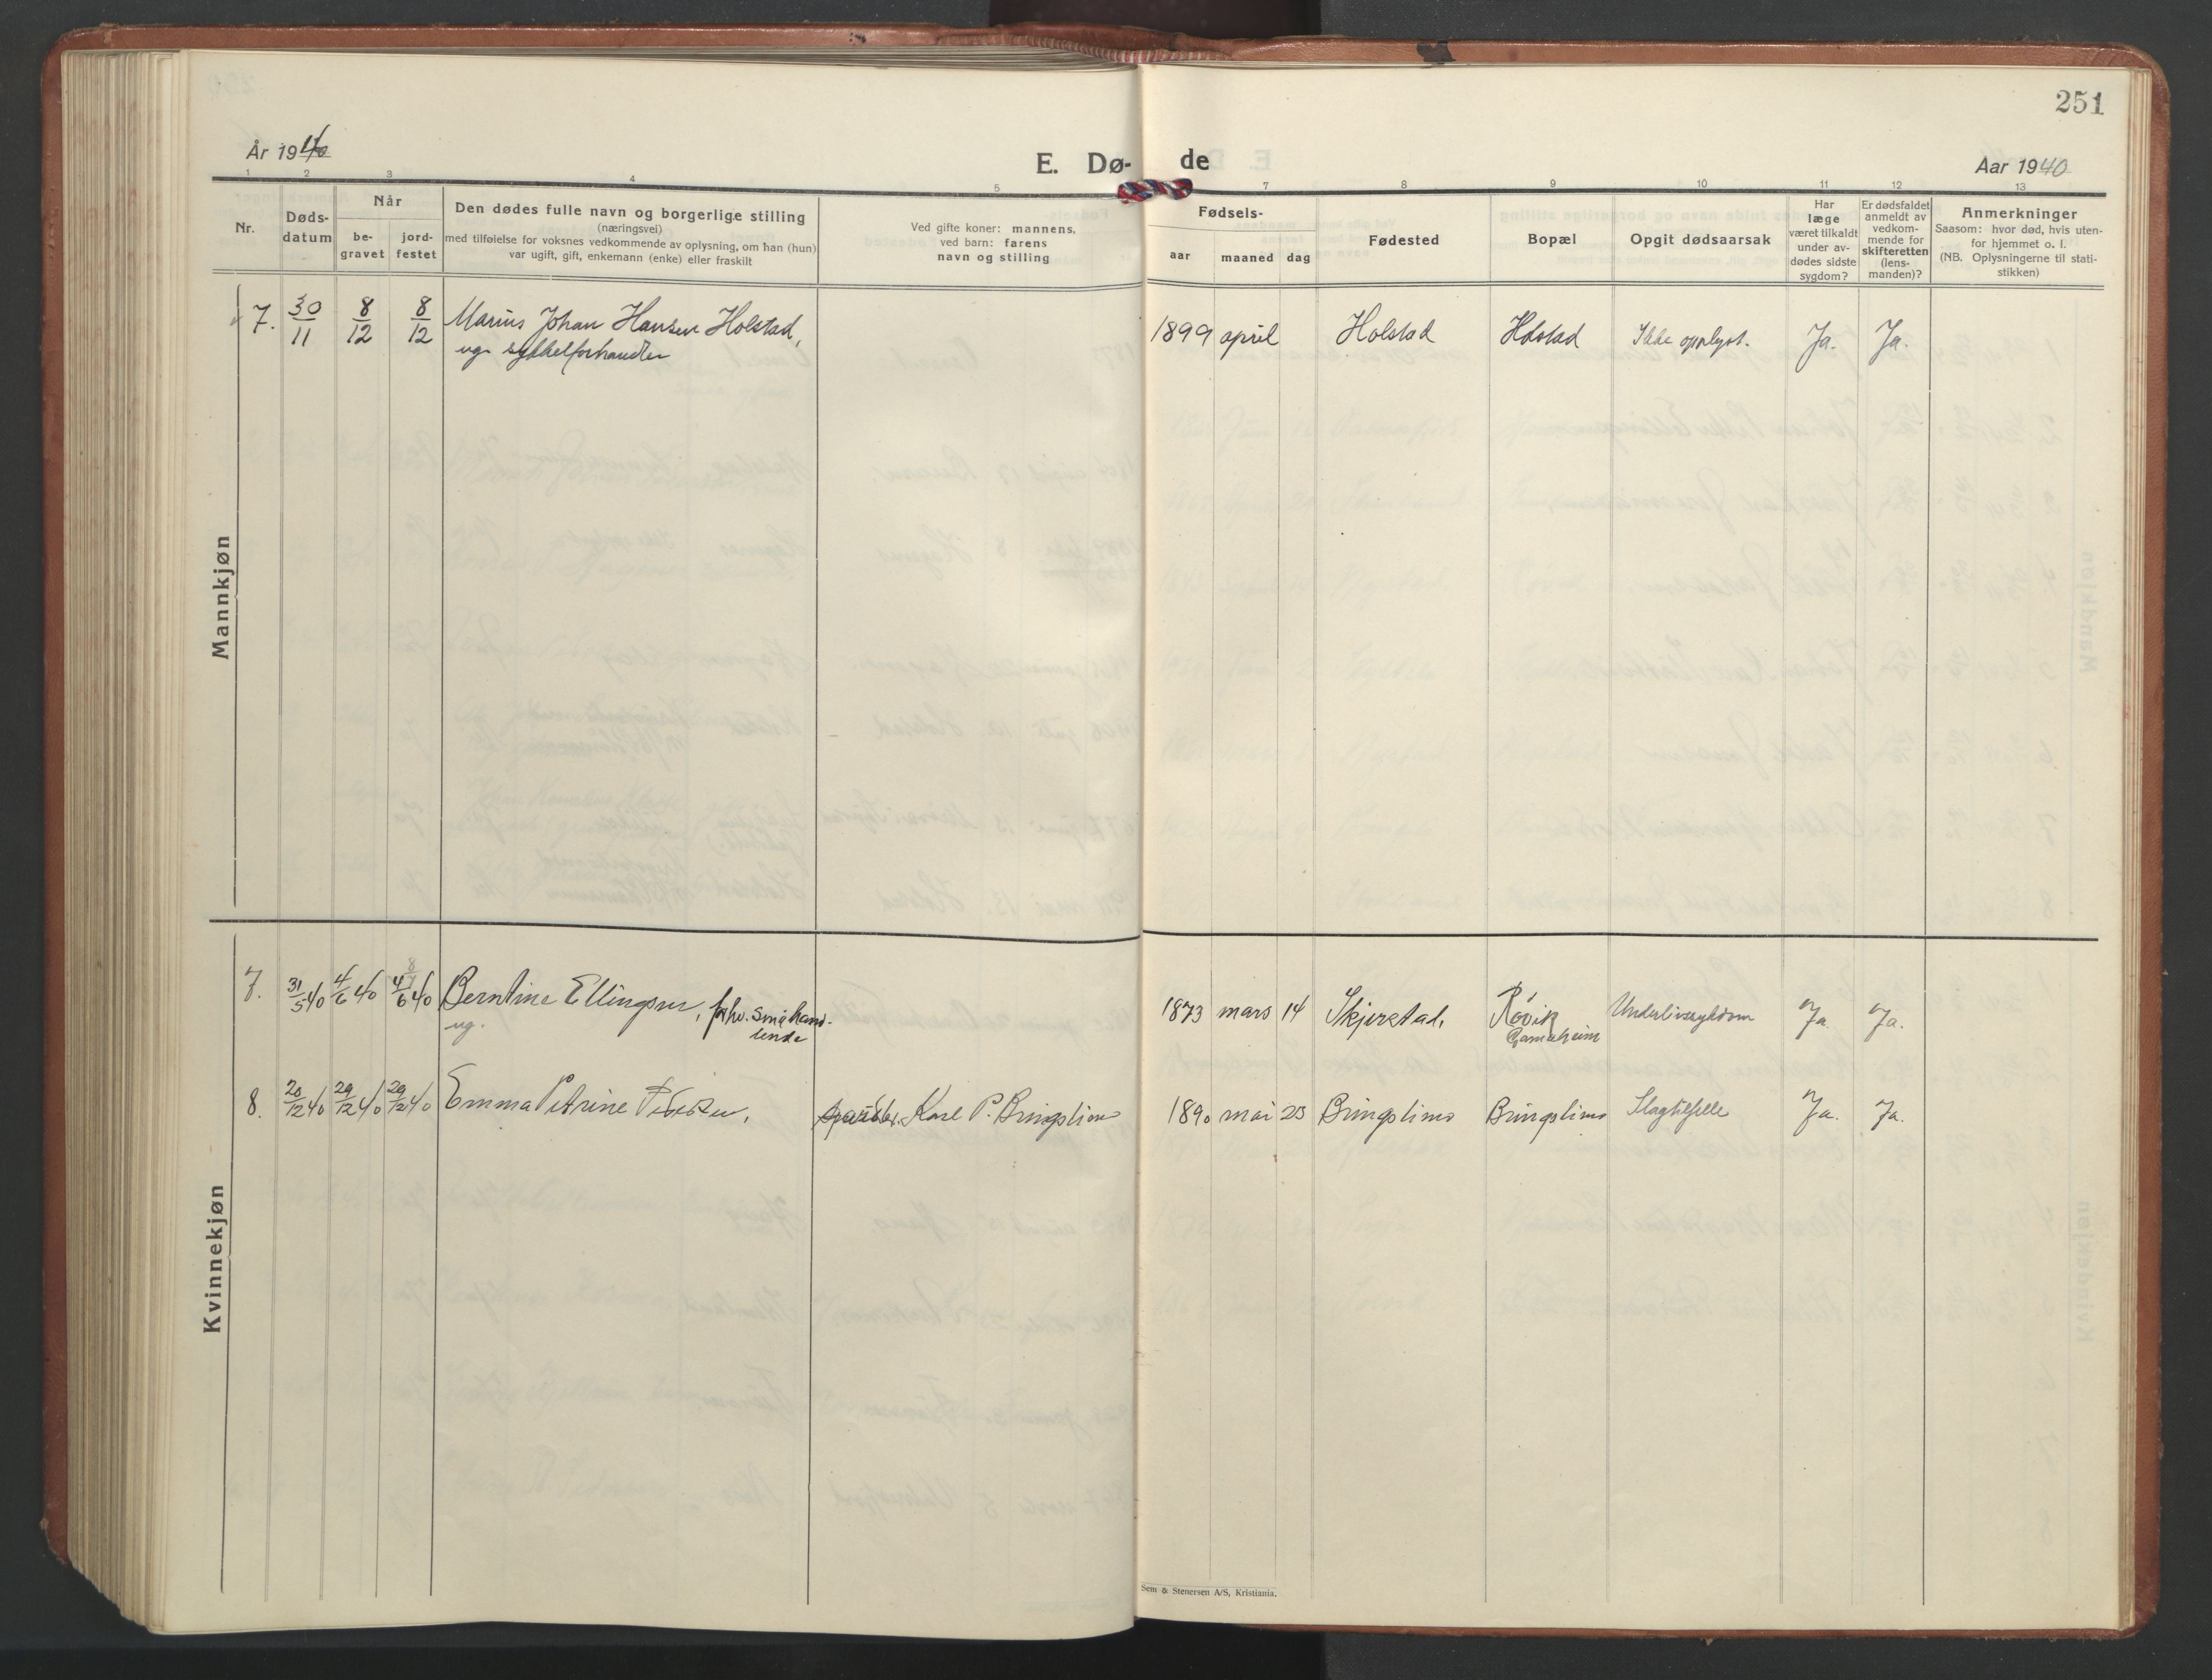 251
År 1940
E. Dø- de
Aar 1940
1 2 3 4 5 7 8 9 10 11 12 13
Nr.
Døds-
datum
Når
be-
gravet
jord-
festet
Den dødes fulle navn og borgerlige stilling
(næringsvei)
med tilføielse for voksnes vedkommende av oplysning, om han (hun)
var ugift, gift, enkemann (enke) eller fraskilt
Ved gifte koner: mannens,
ved barn: farens
navn og stilling
Fødsels-
aar maaned dag
Fødested
Bopæl
Opgit dødsaarsak
Har
læge
været tilkaldt
under av-
dødes sidste
sygdom?
Er dødsfaldet
anmeldt av
vedkom-
mende for
skifteretten
(lens-
manden)?
Anmerkninger
Saasom: hvor død, hvis uten-
for hjemmet o. l.
(NB. Oplysningerne til stati-
stikken)
Mannkjøn
7. 30/11 8/12 8/12 Marius Johan Hansen Holstad, 1899 april Holstad Holstad Ikke opplyst. Ja. Ja.
ug. sykkelforhandler
Kvinnekjøn
7. 31/5 40 4/6 40 4/6 40 Berntine Ellingsen, forhv. småhand- 1873 mars 14 Skjerstad, Røvik Underlivssykdom Ja. Ja.
ug. lende Gamleheim
8. 20/12 40 29/12 40 29/12 40 Emma Petrine Pedersen, Karl P. Bringslimo 1890 mai 23 Bringslimo Bringslimo Slagtilfelle Ja. Ja.
Sem & Stenersen A/S, Kristiania.